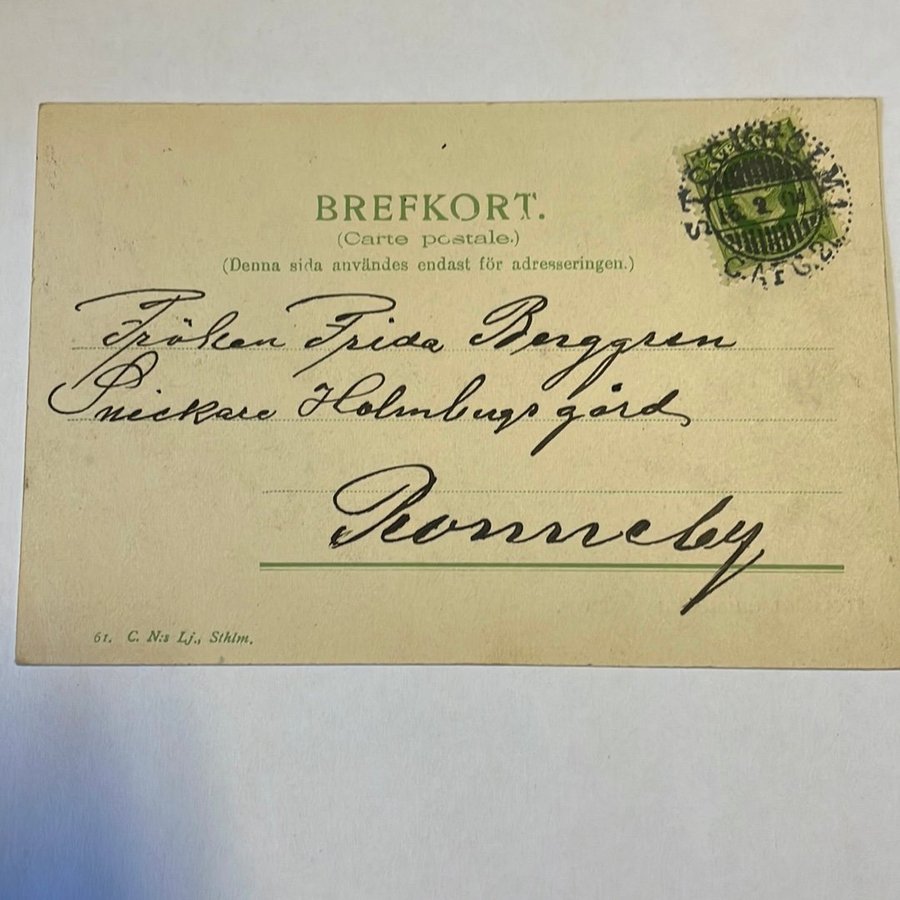 BREFKORT.
(Carte postale.)
(Denna sida användes endast för adresseringen.)
STOCKHOLM 1
18 2 04
Fröken Frida Berggren
Snickare Holmbergs gård
Ronneby
61. C. N:s Lj., Sthlm.